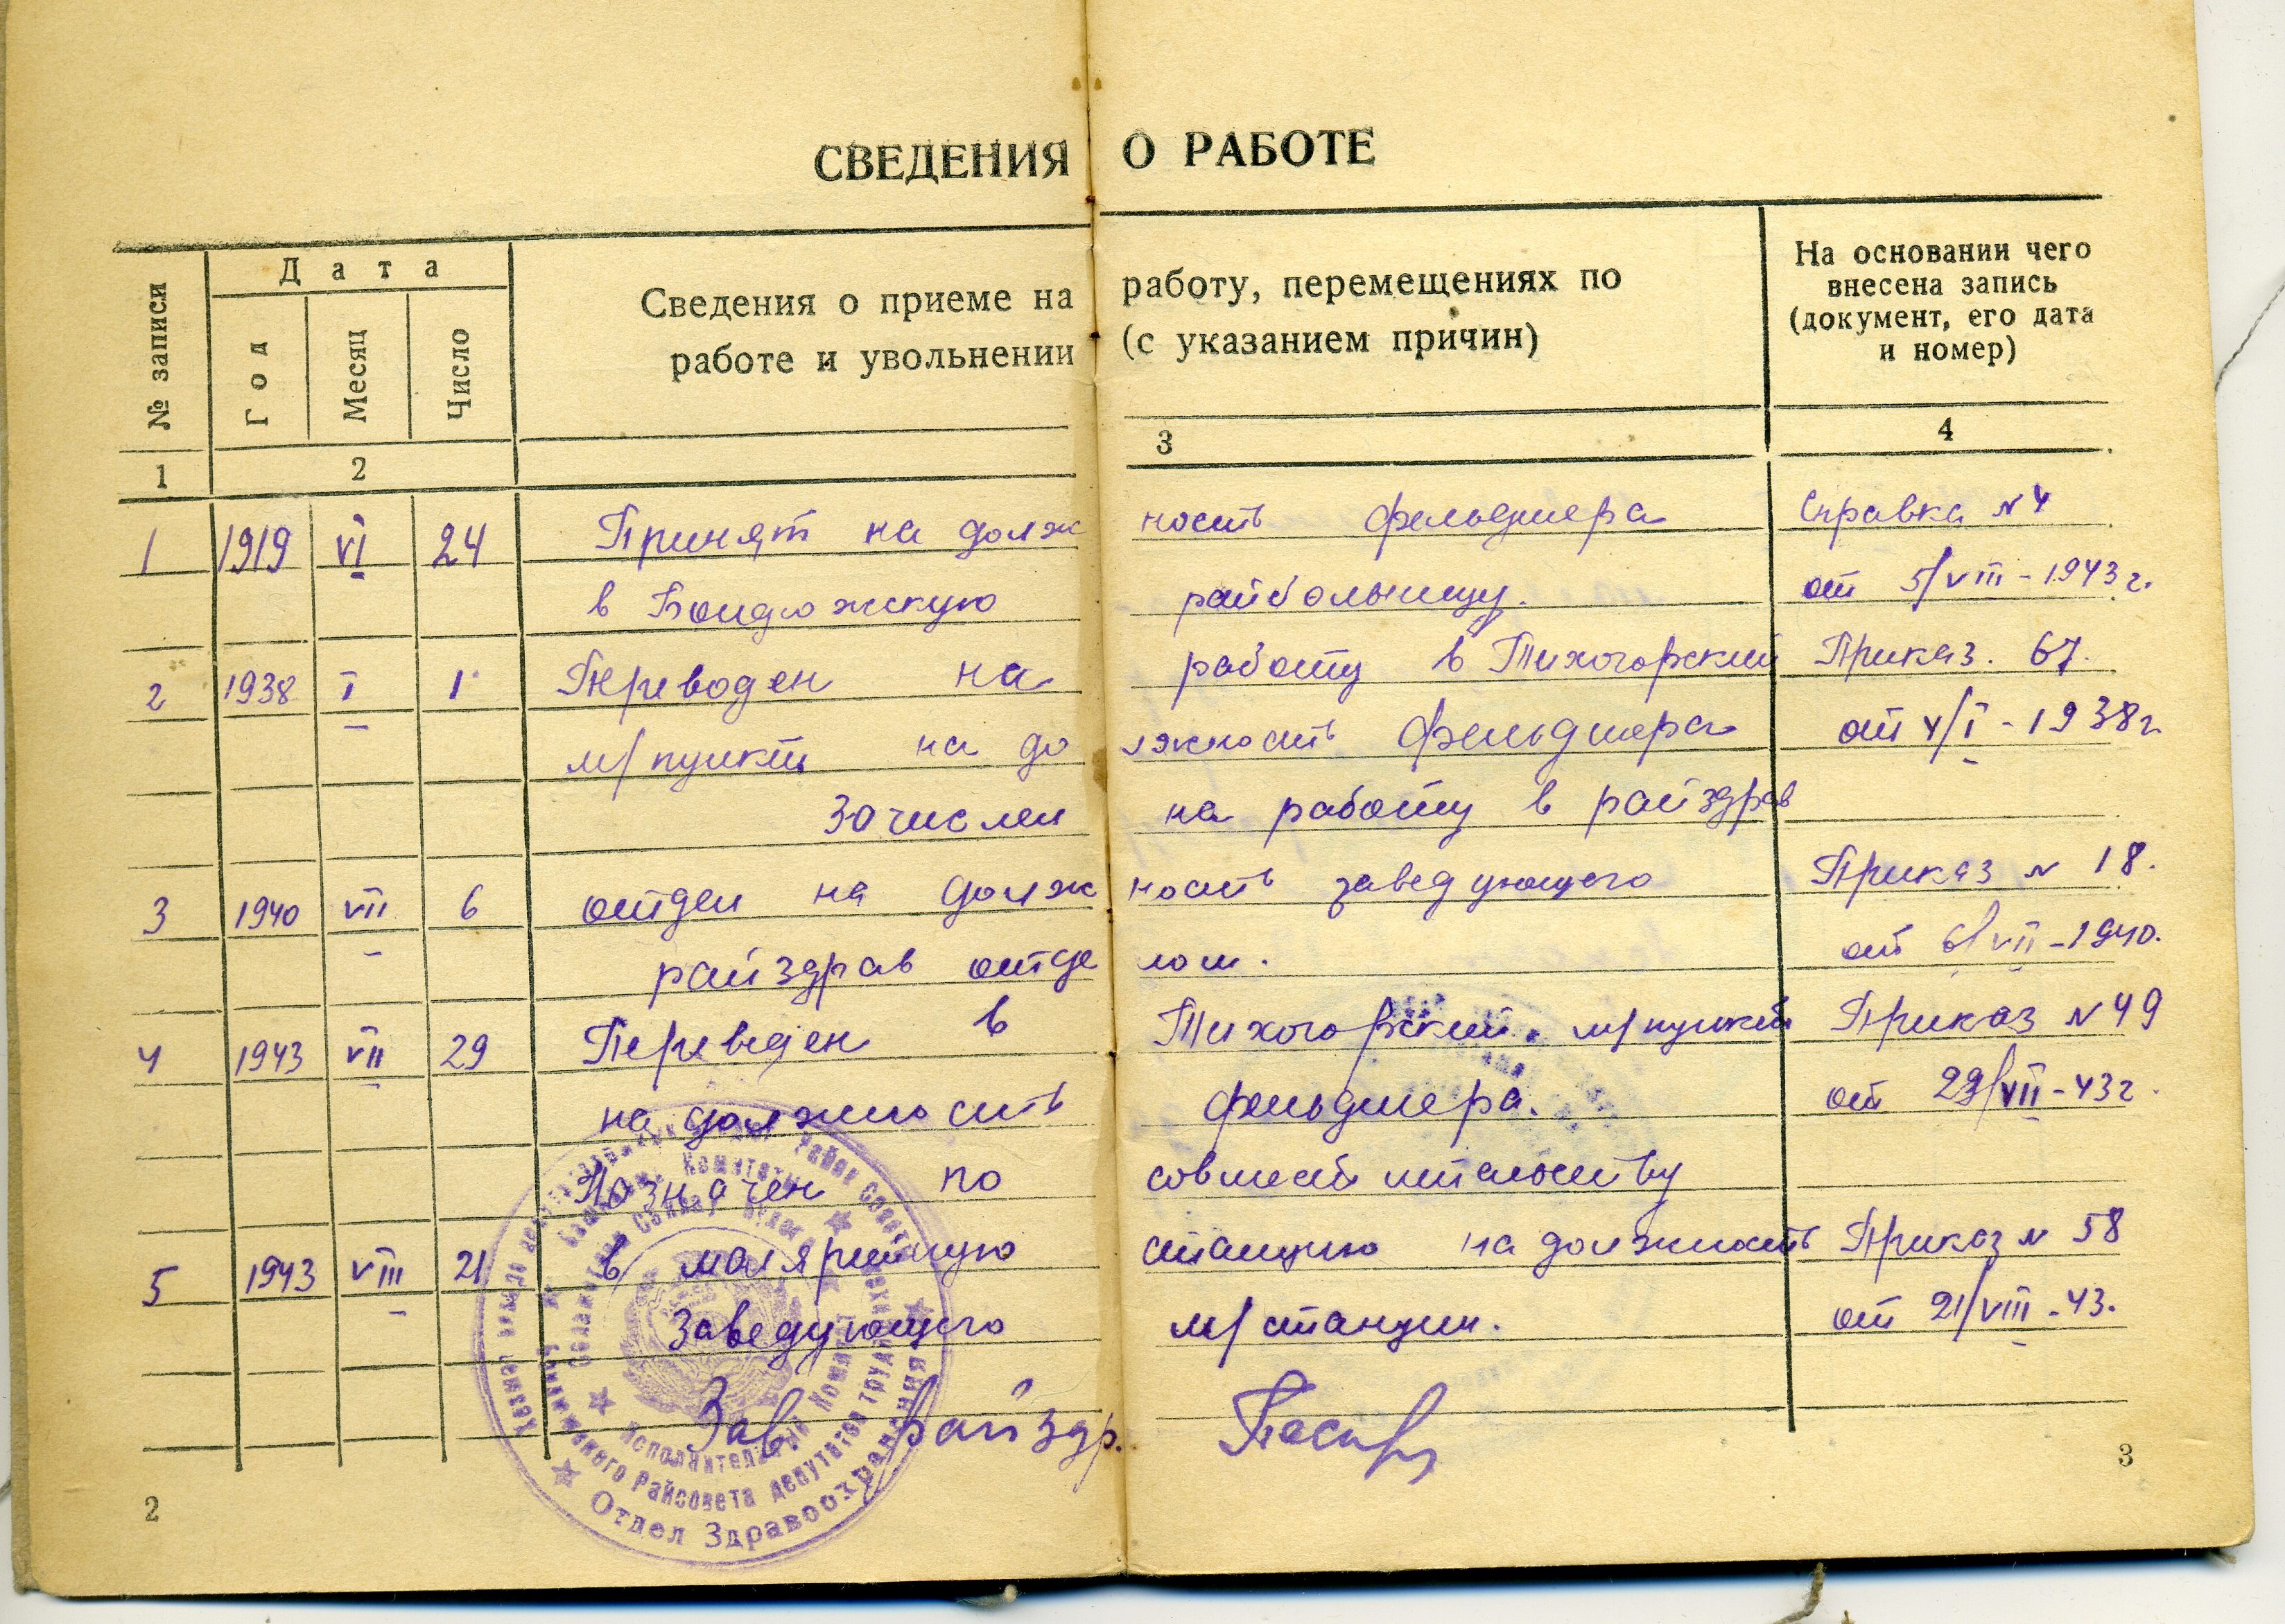 СВЕДЕНИЯ О РАБОТЕ
№ записи
Дата
Год
Месяц
Число
Сведения о приеме на работу, перемещениях по
работе и увольнении (с указанием причин)
На основании чего
внесена запись
(документ, его дата
и номер)
1 2 3 4
1 1919 VI 24 Принят на долж ность фельдшера Справка N 4
в Бондюжскую райбольницу. от 5/VIII-1943 г.
2 1938 I 1 Переводен на работу в Тихогорский Приказ. 67.
м/пункт на до лжность фельдшера от 4/I-1938 г.
Зочислен на работу в райздрав
3 1940 VII 6 отдел на долж ность заведующего Приказ N 18.
райздрав отде лом. от 6/VII-1940.
4 1943 VII 29 Переведен в Тихогорский м/пункт Приказ N 49
на должность фельдшера. от 29/VII-43 г.
Назначен по совместительству
5 1943 VIII 21 в малярийную станцию на должность Приказ N 58
Заведующего м/станции. от 21/VIII-43.
Зав. Райздр.
Исполнительный Комитет
Райсовета депутатов трудящихся
Отдел Здравоохранения
2 3